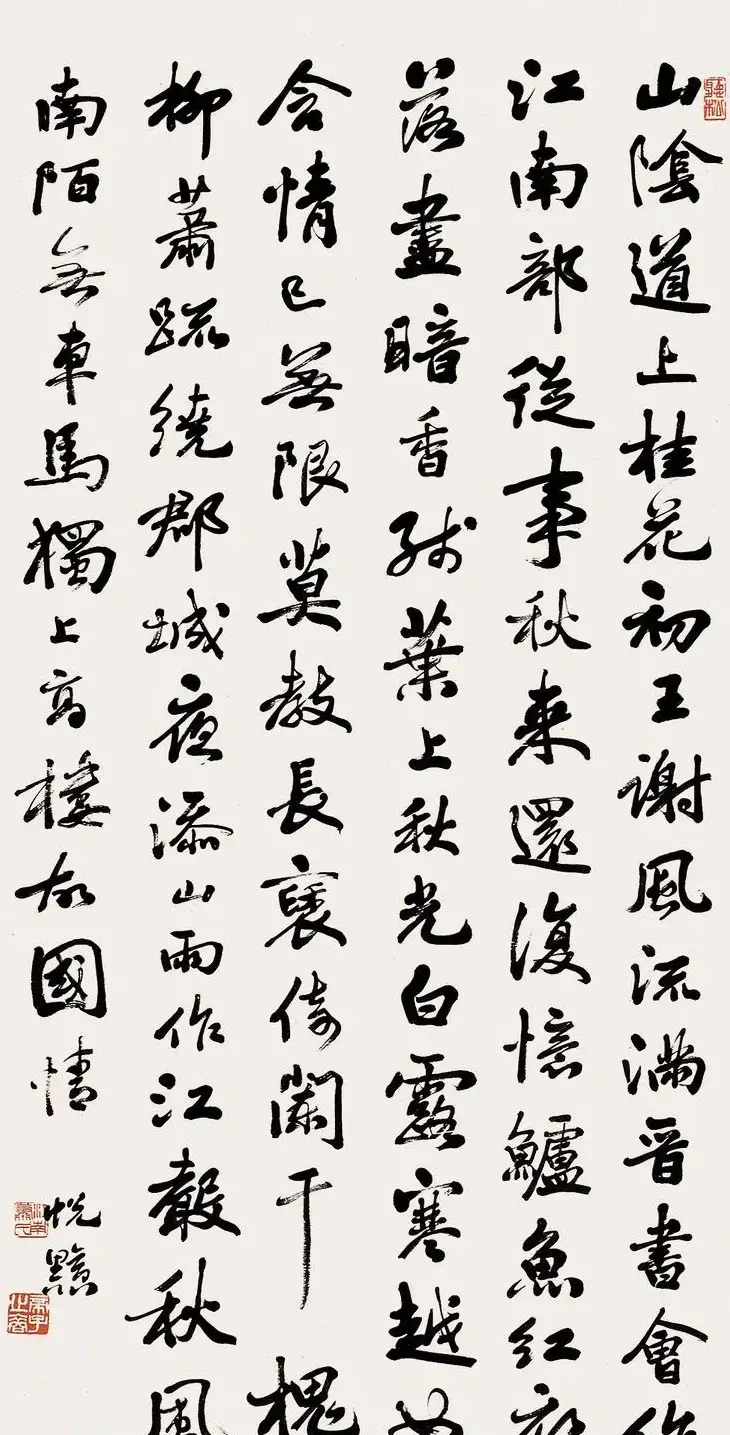 山陰道上桂花初王謝風流滿晉書會作
江南部從事秋來還復憶鱸魚紅衣
落盡暗香殘葉上秋光白露寒越女
含情已無限莫教長褎倚闌干 槐
柳蕭疏繞郡城夜添山雨作江聲秋風
南陌無車馬獨上高樓故國情